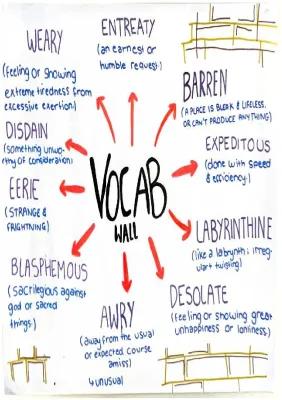 WEARY
(feeling or showing
extreme tiredness from
excessive exertion.)
ENTREATY
(an earnest or
humble request.)
BARREN
(A PLACE IS BLEAK & LIFELESS,
OR CAN'T PRODUCE ANYTHING)
DISDAIN
(something unwo-
rthy of consideration)
EXPEDITOUS
(done with speed
& efficiency.)
EERIE
(STRANGE &
FRIGHTNING)
VOCAB
WALL
LABYRINTHINE
(like a labyrinth; irreg-
ular twisting)
BLASPHEMOUS
(sacrilegious against
god or sacred
things.)
AWRY
(away from the usual
or expected course
amiss)
unusual
DESOLATE
(feeling or showing great
unhappiness or lonliness.)